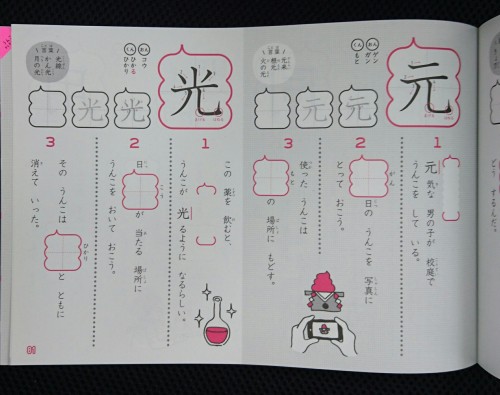 元
おん ゲン ガン
くん もと
言葉
元来
根元
火の元
元 元
1
元気な 男の子が 校庭で
うんこを して いる。
2
がん
日の うんこを 写真に
とって おこう。
3
使った うんこは
もと
の 場所に もどす。
光
おん コウ
くん ひかる ひかり
言葉
光線
かん光
月の光
光 光
1
この 薬を 飲むと、
うんこが 光るように なるらしい。
2
日
こう
が 当たる 場所に
うんこを おいて おこう。
3
その うんこは
ひかり
と ともに
消えて いった。
どう するんだ。